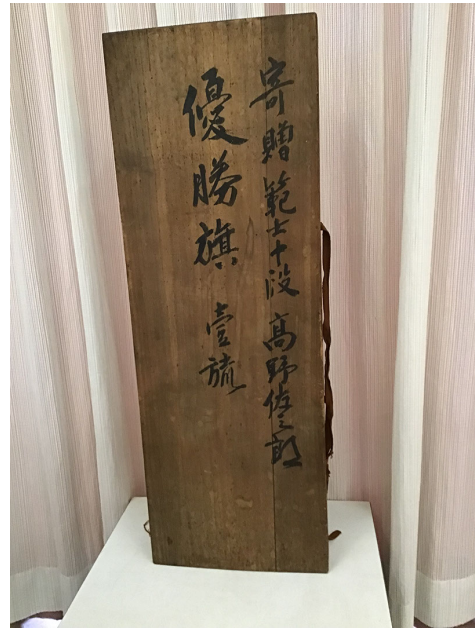 寄贈 範士十段 高野佐三郎
優勝旗 壹旒